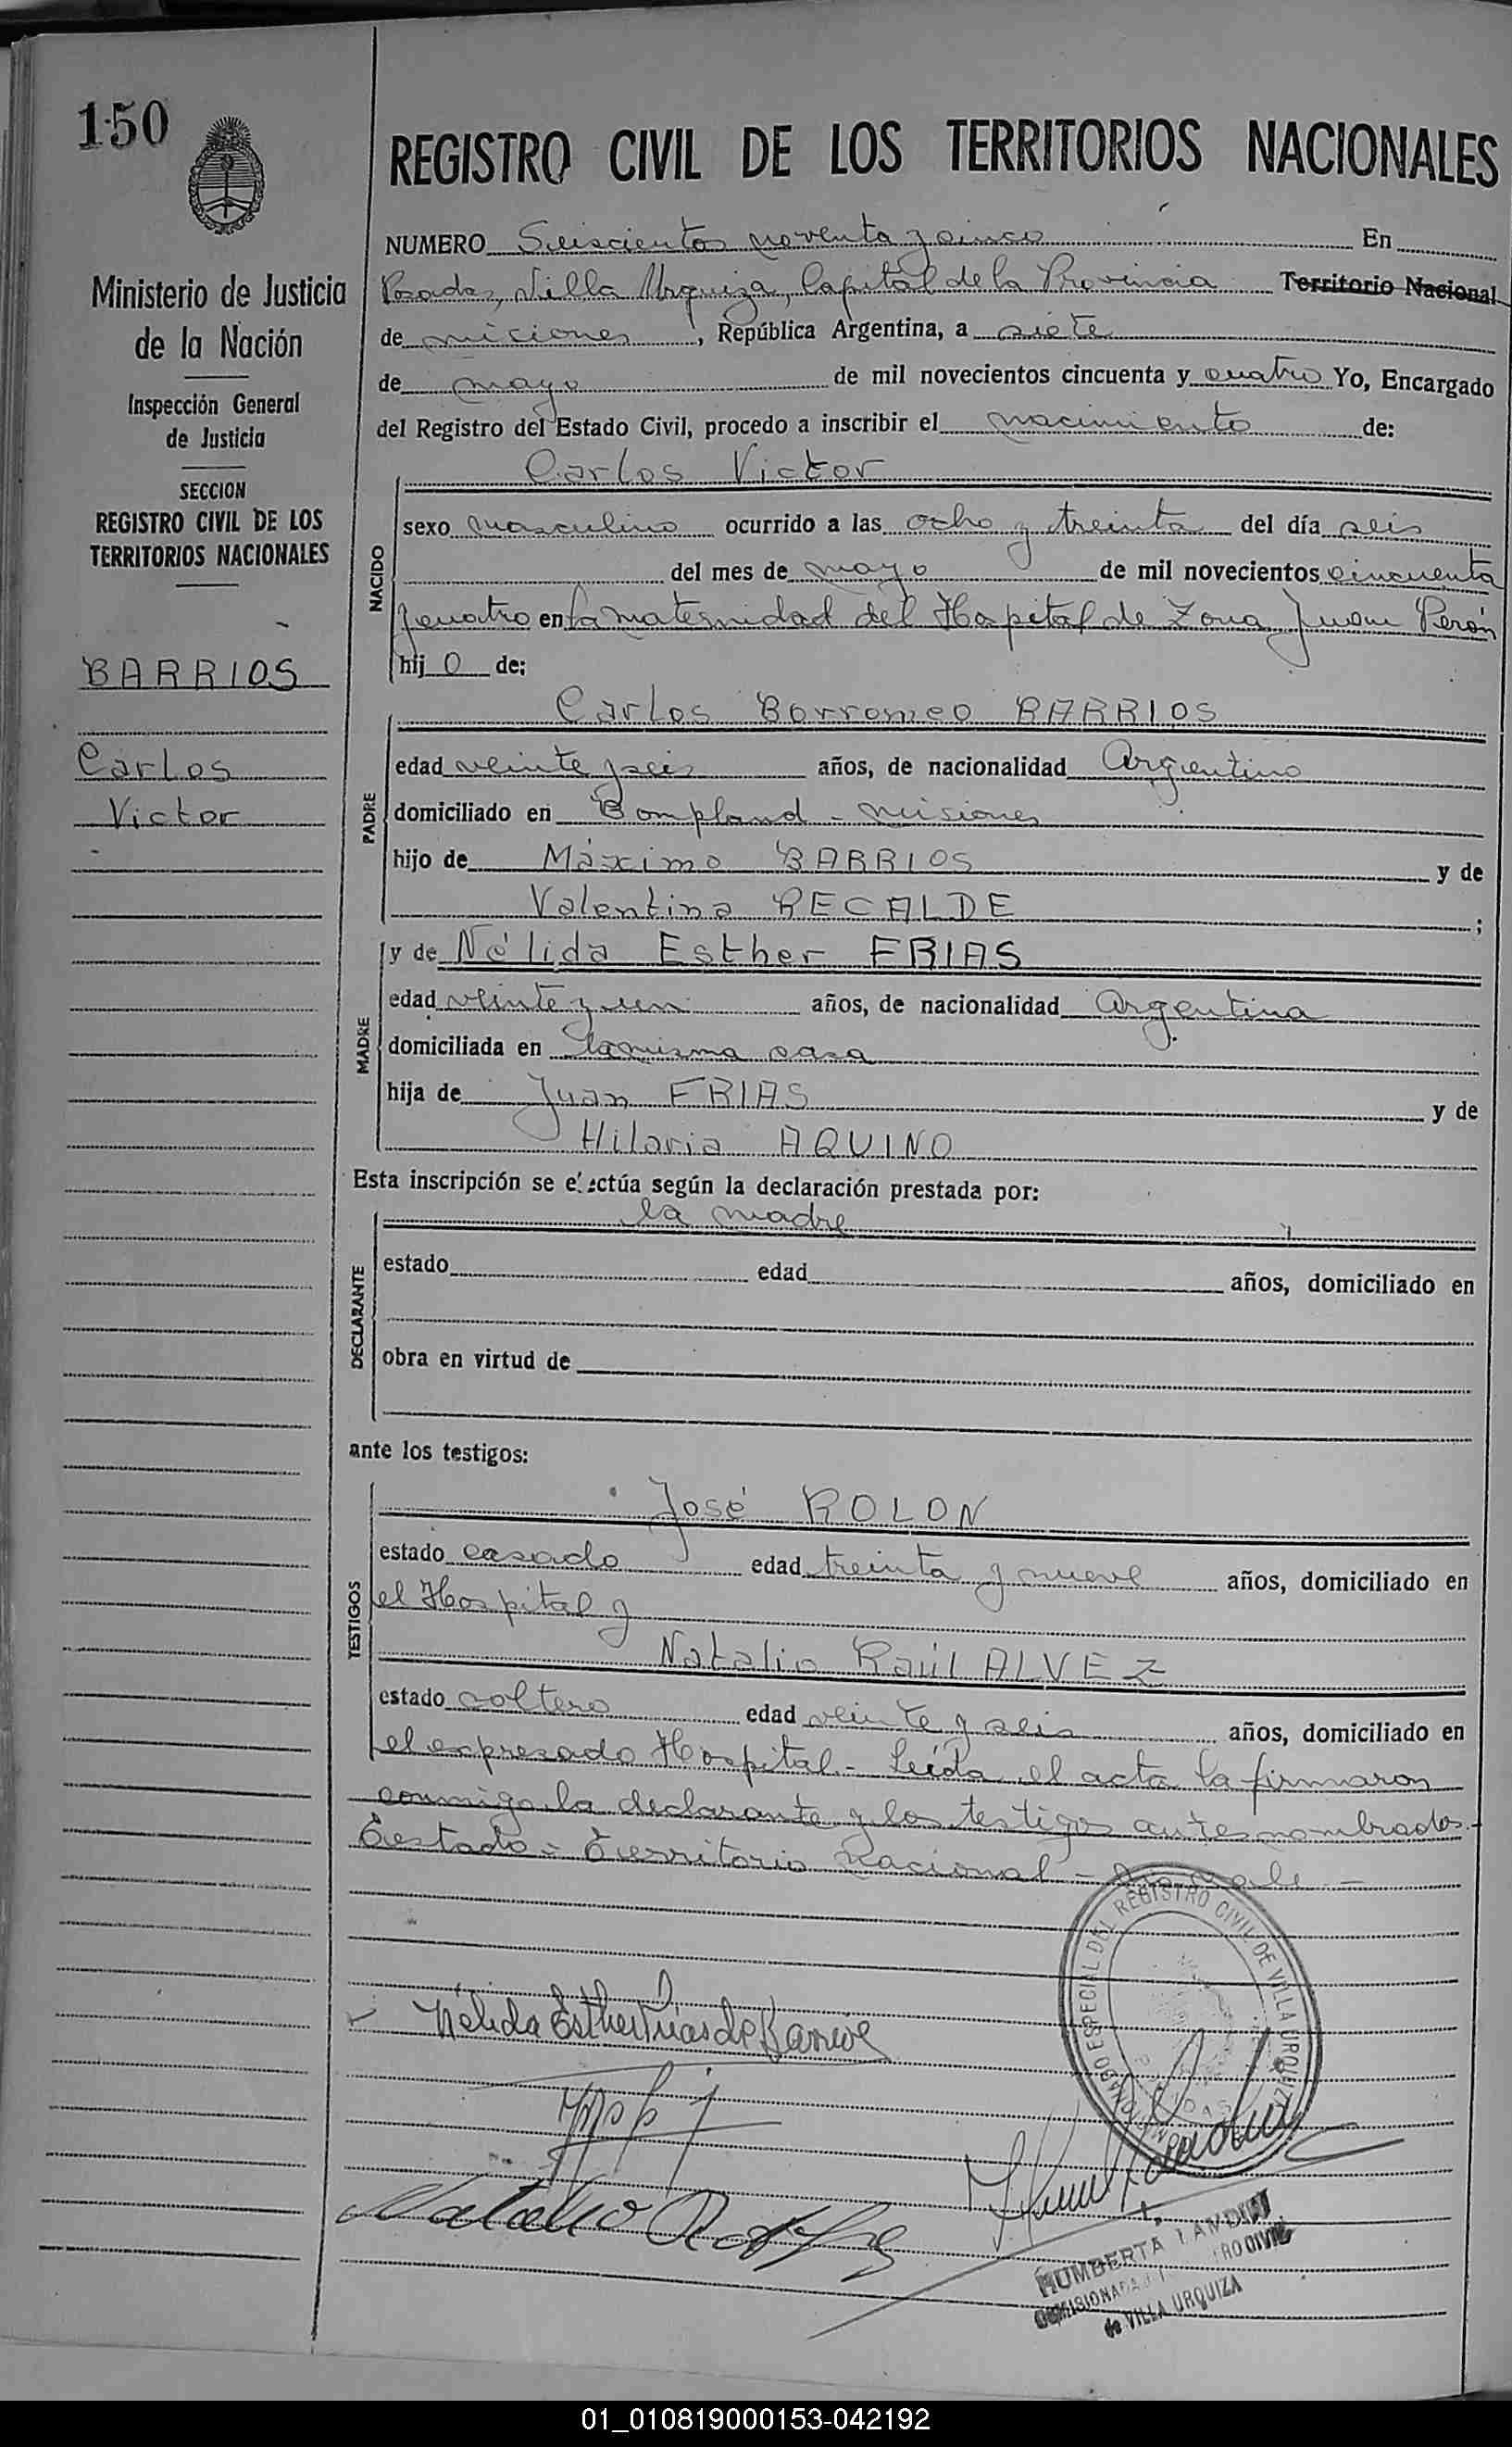 150
REGISTRO CIVIL DE LOS TERRITORIOS NACIONALES
Ministerio de Justicia
de la Nación
Inspección General
de Justicia
SECCION
REGISTRO CIVIL DE LOS
TERRITORIOS NACIONALES
BARRIOS
Carlos
Victor
NUMERO Seiscientos noventa y cinco En
Posadas, Villa Urquiza, Capital de la Provincia Territorio Nacional
de misiones, República Argentina, a siete
de mayo de mil novecientos cincuenta y cuatro Yo, Encargado
del Registro del Estado Civil, procedo a inscribir el nacimiento de:
Carlos Victor
NACIDO
sexo masculino ocurrido a las ocho y treinta del día seis
del mes de mayo de mil novecientos cincuenta
y cuatro en la maternidad del Hospital de Zona Juan Perón
hij o de:
Carlos Borromeo BARRIOS
PADRE
edad veinte y seis años, de nacionalidad Argentino
domiciliado en Bompland - misiones
hijo de Máximo BARRIOS y de
Valentina RECALDE ;
y de Nélida Esther FRIAS
MADRE
edad veinte y un años, de nacionalidad Argentina
domiciliada en la misma casa
hija de Juan FRIAS y de
Hilaria AQUINO
Esta inscripción se efectúa según la declaración prestada por:
la madre
DECLARANTE
estado edad años, domiciliado en
obra en virtud de
ante los testigos:
José ROLON
TESTIGOS
estado casado edad treinta y nueve años, domiciliado en
el Hospital y
Natalio Raúl ALVEZ
estado soltero edad veinte y seis años, domiciliado en
el expresado Hospital.- Leída el acta la firmaron
conmigo la declarante y los testigos antes nombrados.-
Testado = Territorio Nacional - No vale -
COMISIONADO ESPECIAL DEL REGISTRO CIVIL DE VILLA URQUIZA
Nélida Esther Frias de Barrios
Natalio
HUMBERTA LANDINI
de VILLA URQUIZA
01_010819000153-042192